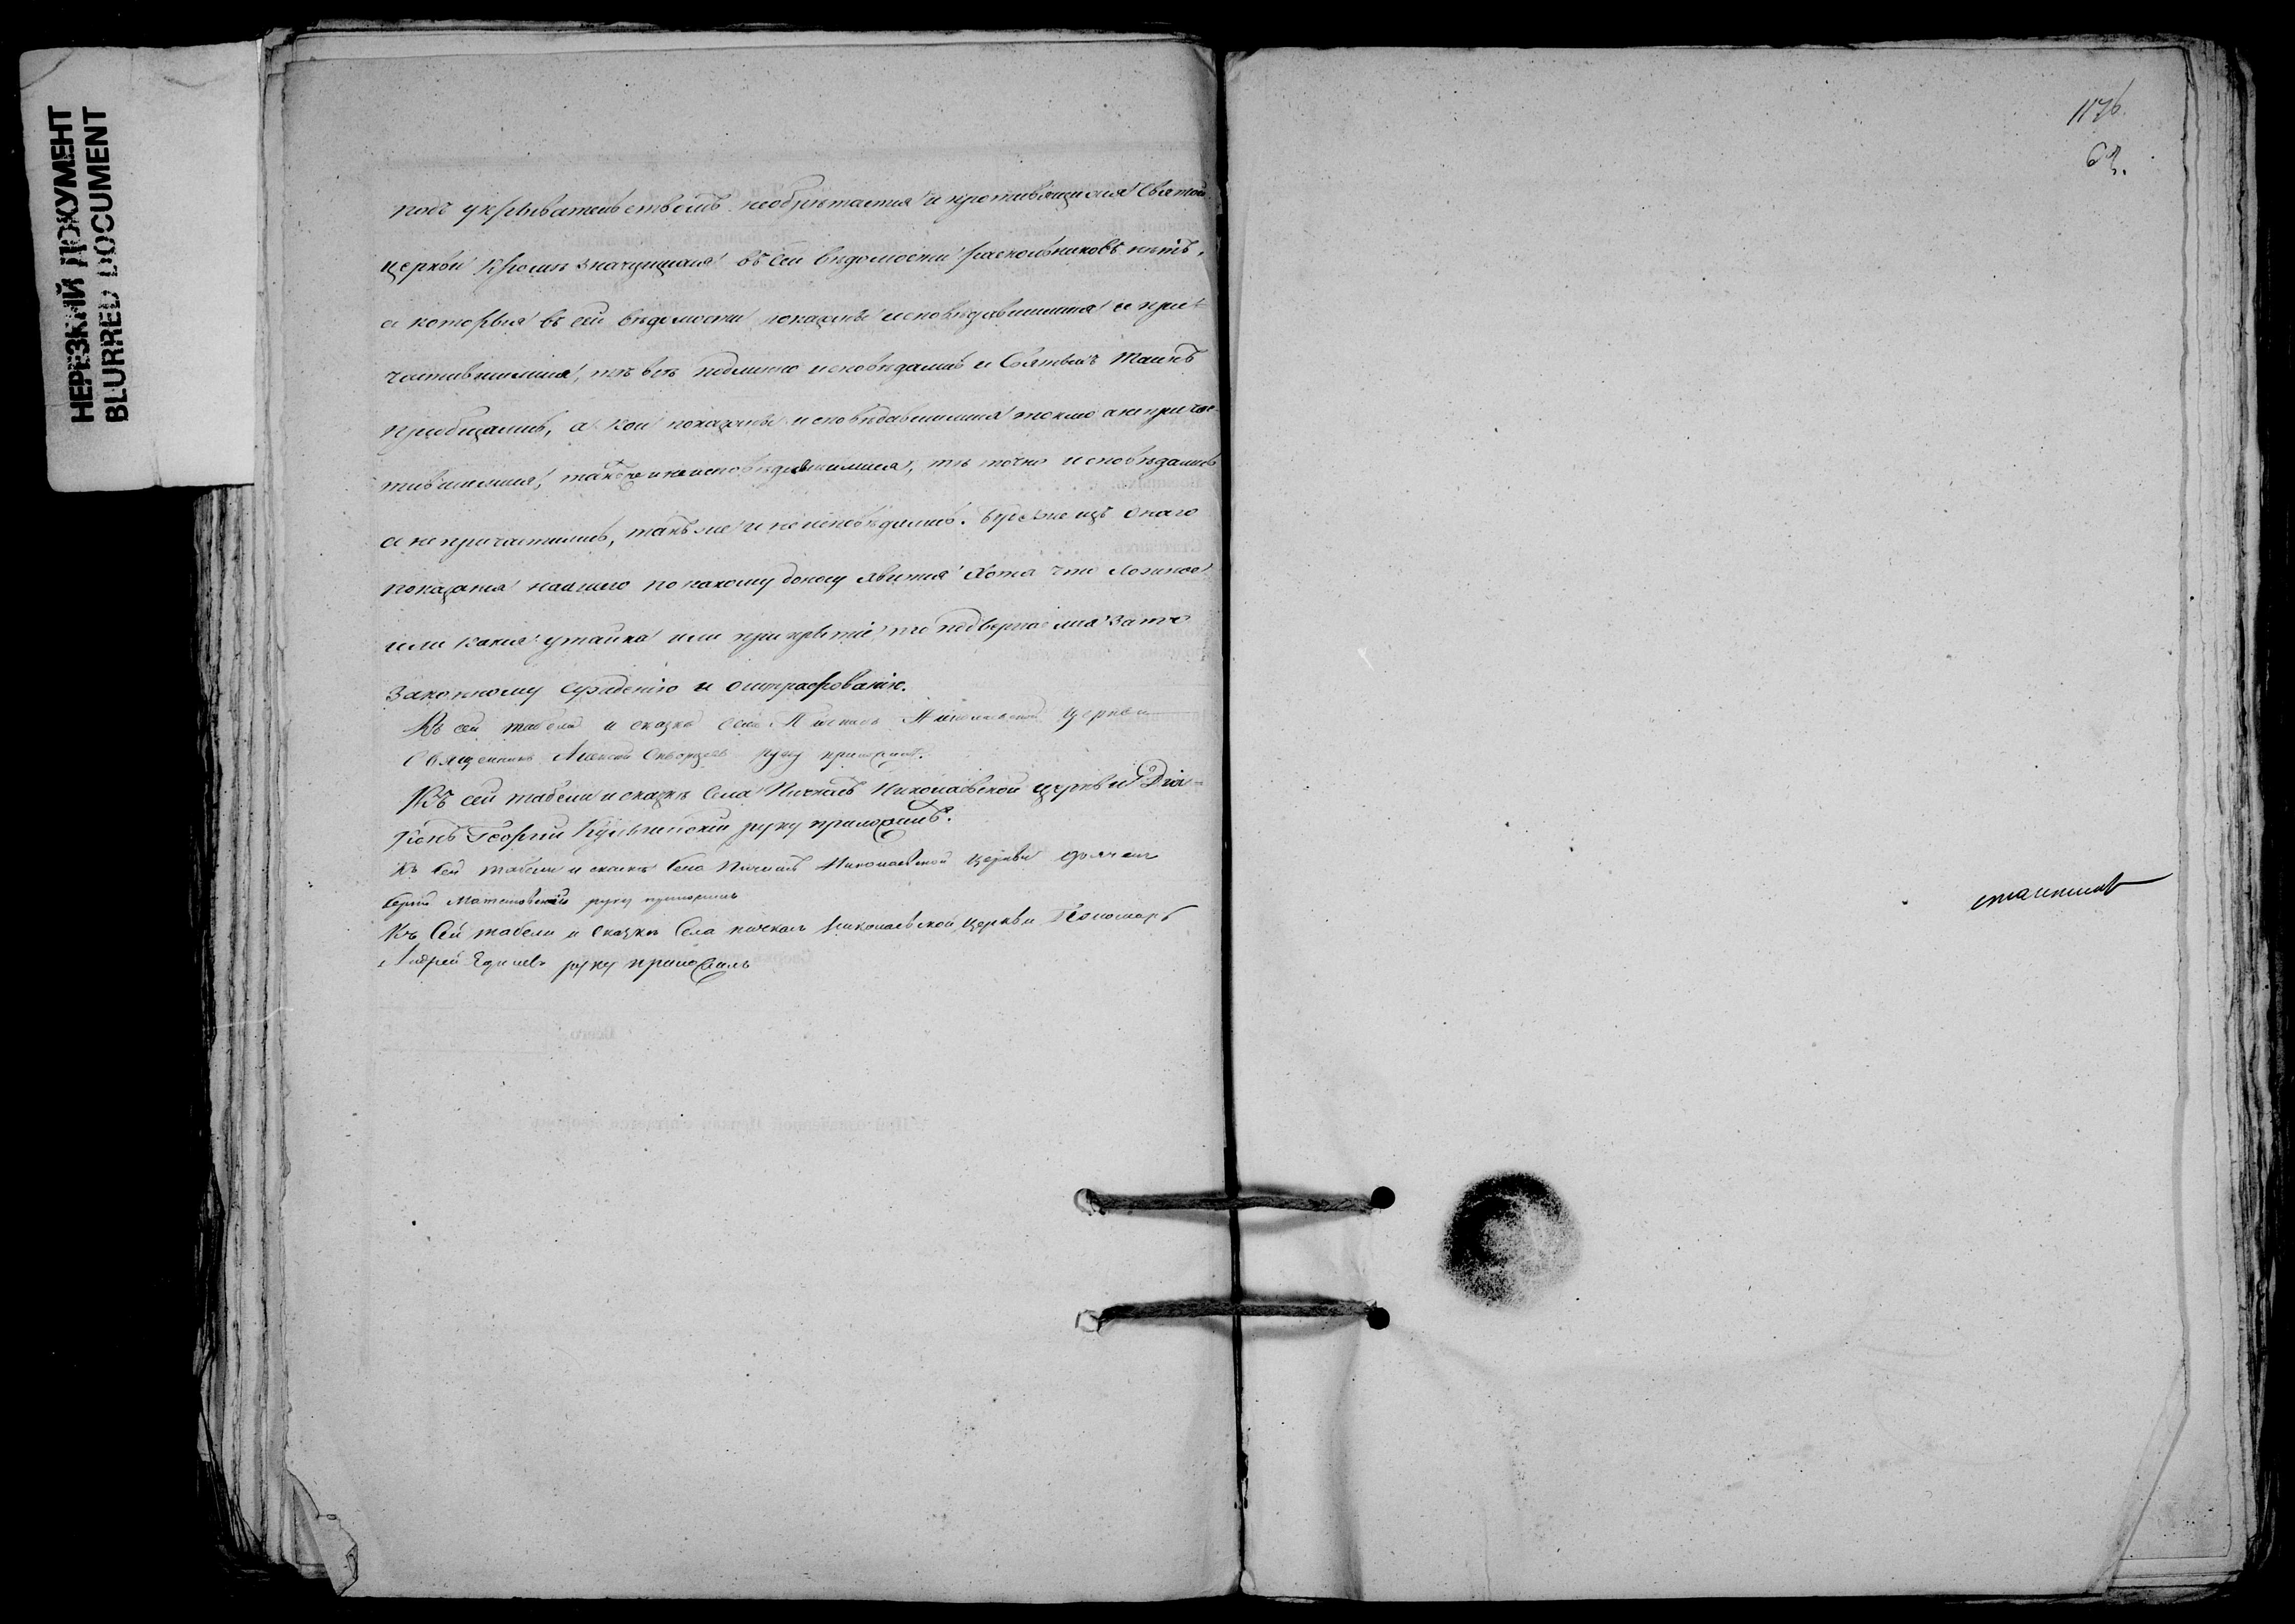 НЕРЕЗКИЙ ДОКУМЕНТ
BLURRED DOCUMENT
подъ укрывательствомъ необрѣтается и противящихся Святой
церкви кромѣ значущихся въ сей вѣдомости раскольниковъ нѣтъ,
а которыя въ сей вѣдомости показаны исповѣдавшимися и при-
частившимися, тѣ всѣ подлинно исповѣдались и Святыхъ Таинъ
приобщались, а кои показаны исповѣдавшимися токмо а не причас-
тившимися, также и не исповѣдавшимися, тѣ точно исповѣдались
а не причастились, такъ же и не исповѣдались. Ежели изъ онаго
показанія нашего по какому доносу явится хотя что ложное
или какая утайка или прикрытіе, то подвергаемся за то
законному сужденію и оштрафованію.
Къ сей табели и сказкѣ села Николаевской церкви
Священникъ Алексей Скворцовъ руку приложилъ.
Къ сей табели и сказкѣ Села Пичкасъ Николаевской церкви Діа-
конъ Георгій руку приложилъ.
Къ сей табели и сказкѣ Села Пичкасъ Николаевской церкви дьячекъ
руку приложилъ
Къ Сей табели и Сказкѣ Села пичкасъ Николаевской церкви Пономарь
Андрей руку приложилъ
Всего
1176
63.